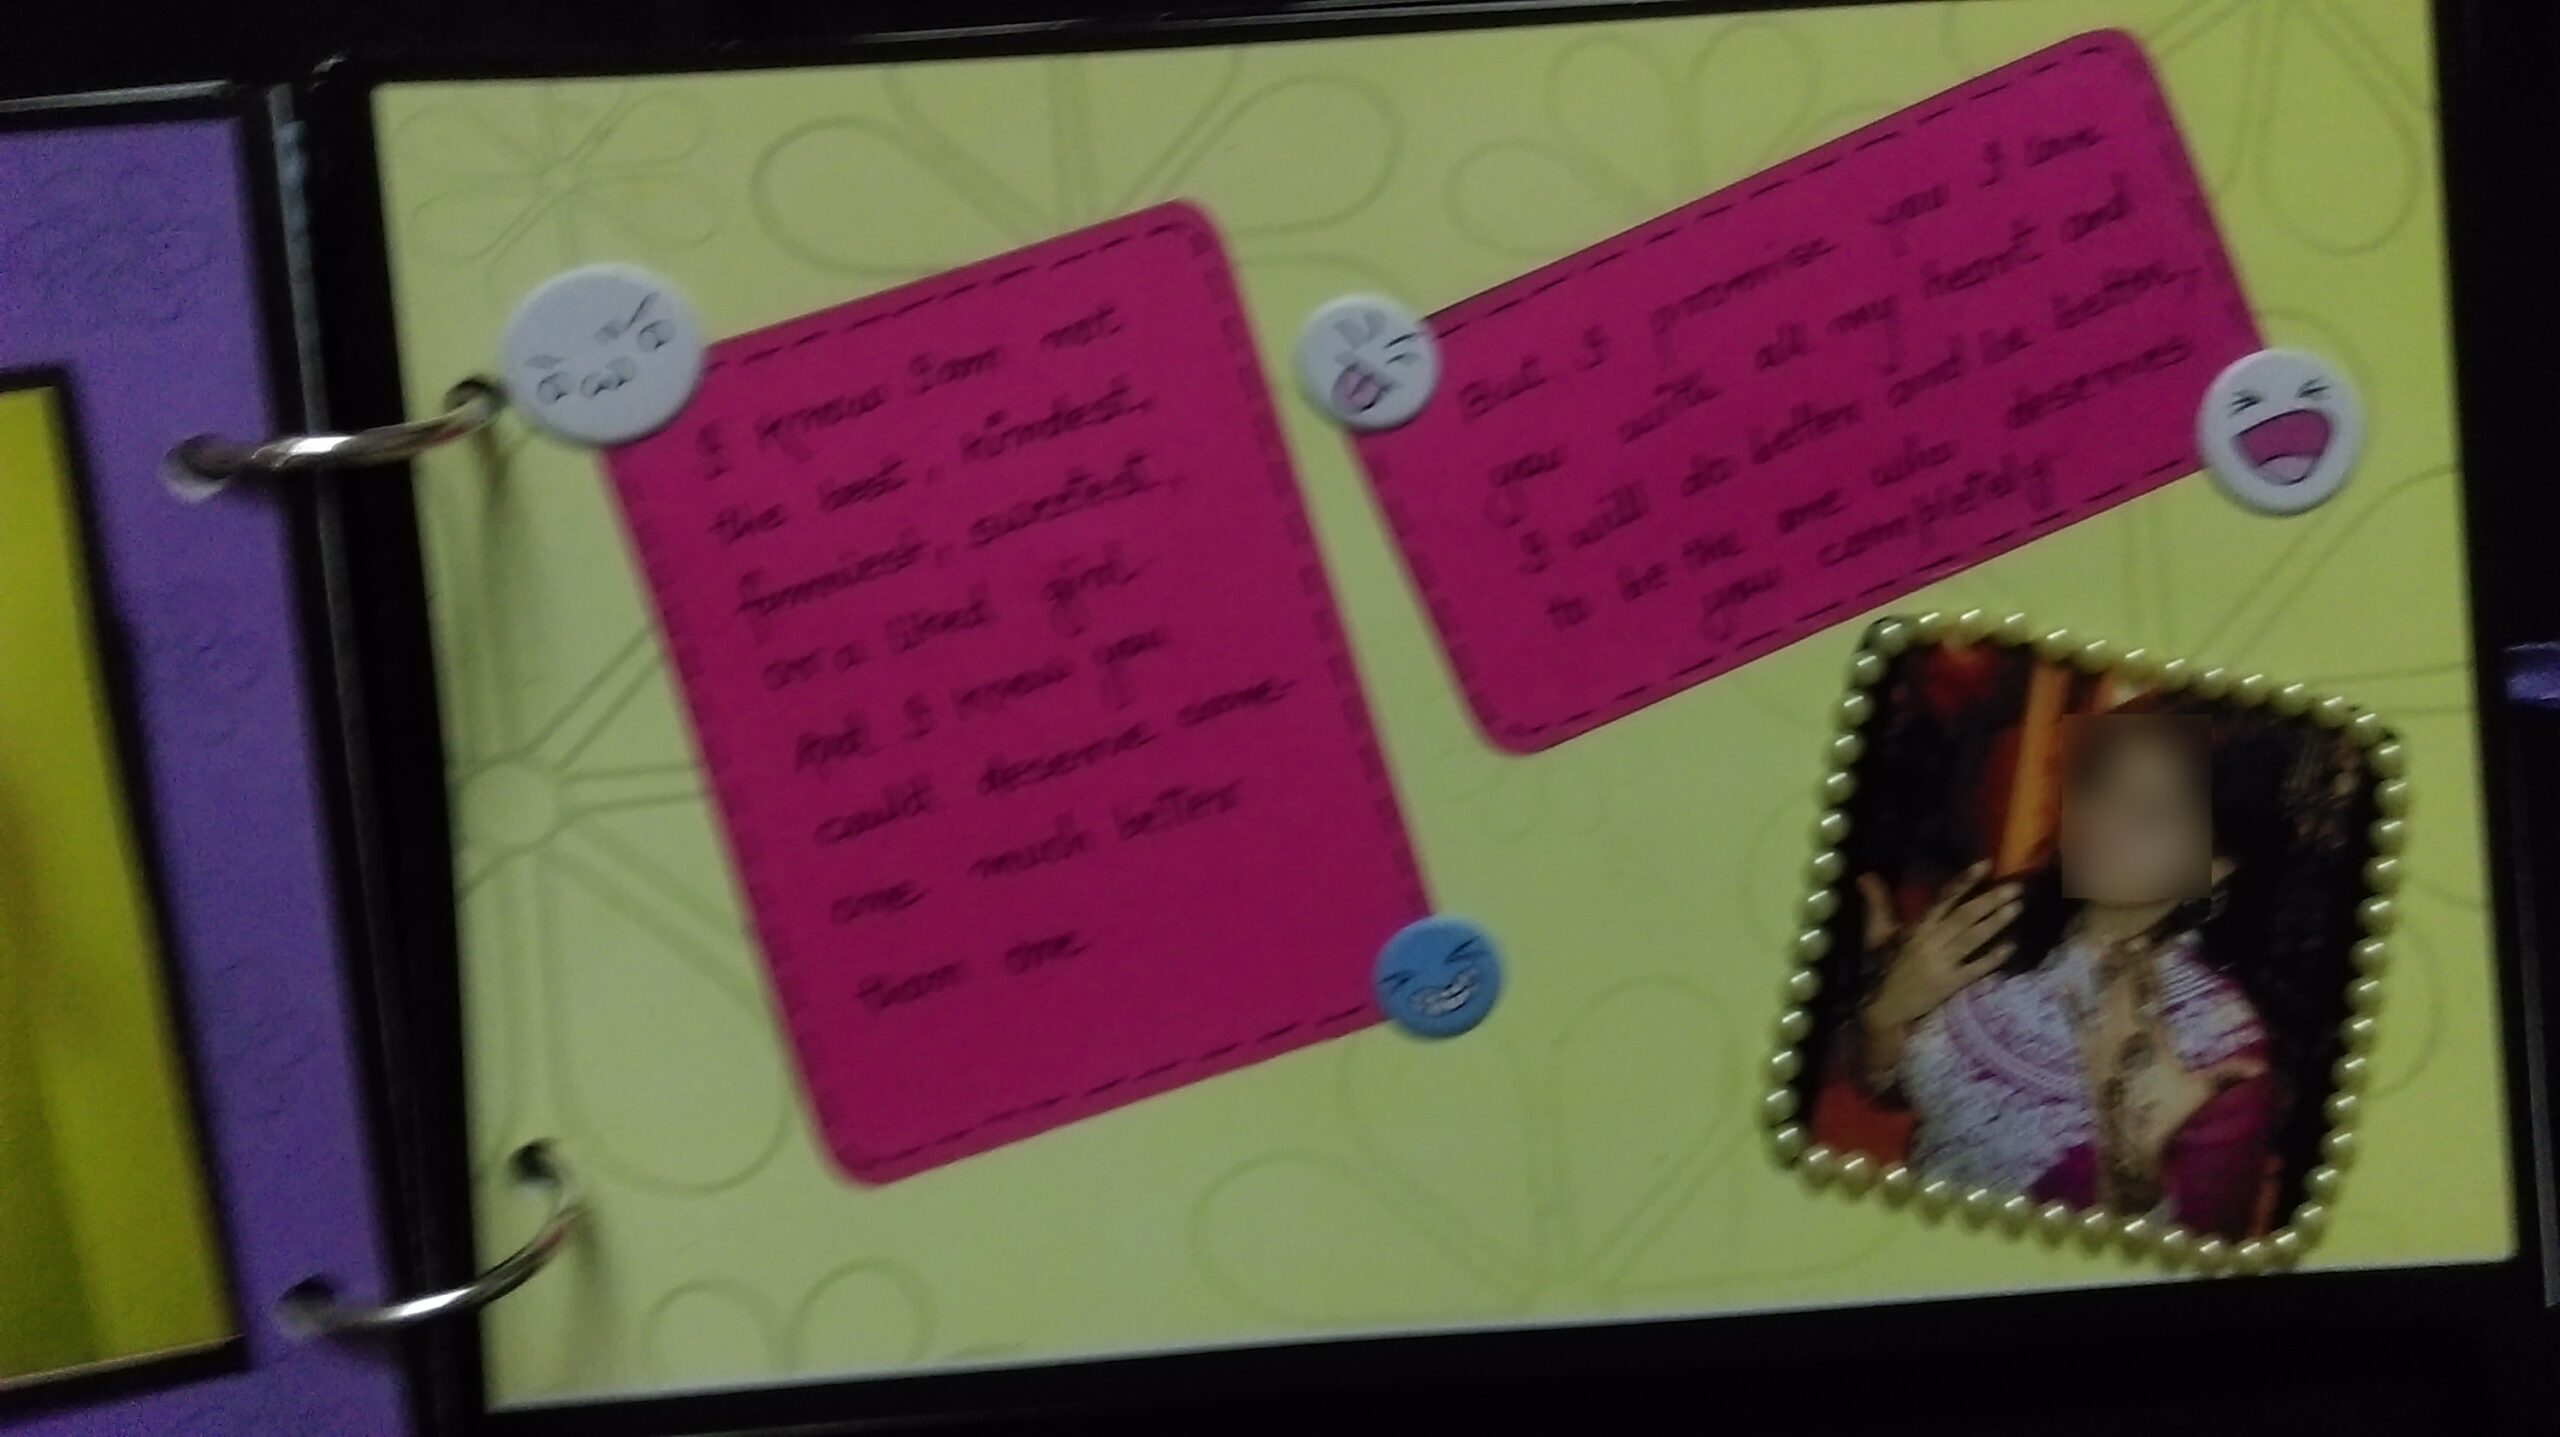 I know I am not
the best, kindest,
funniest, sweetest,
or a liked girl.
And I know you
could deserve some-
one much better
than me
But I promise you I love
you with all my heart and
I will do better and be better,
to be the one who deserves
you completely